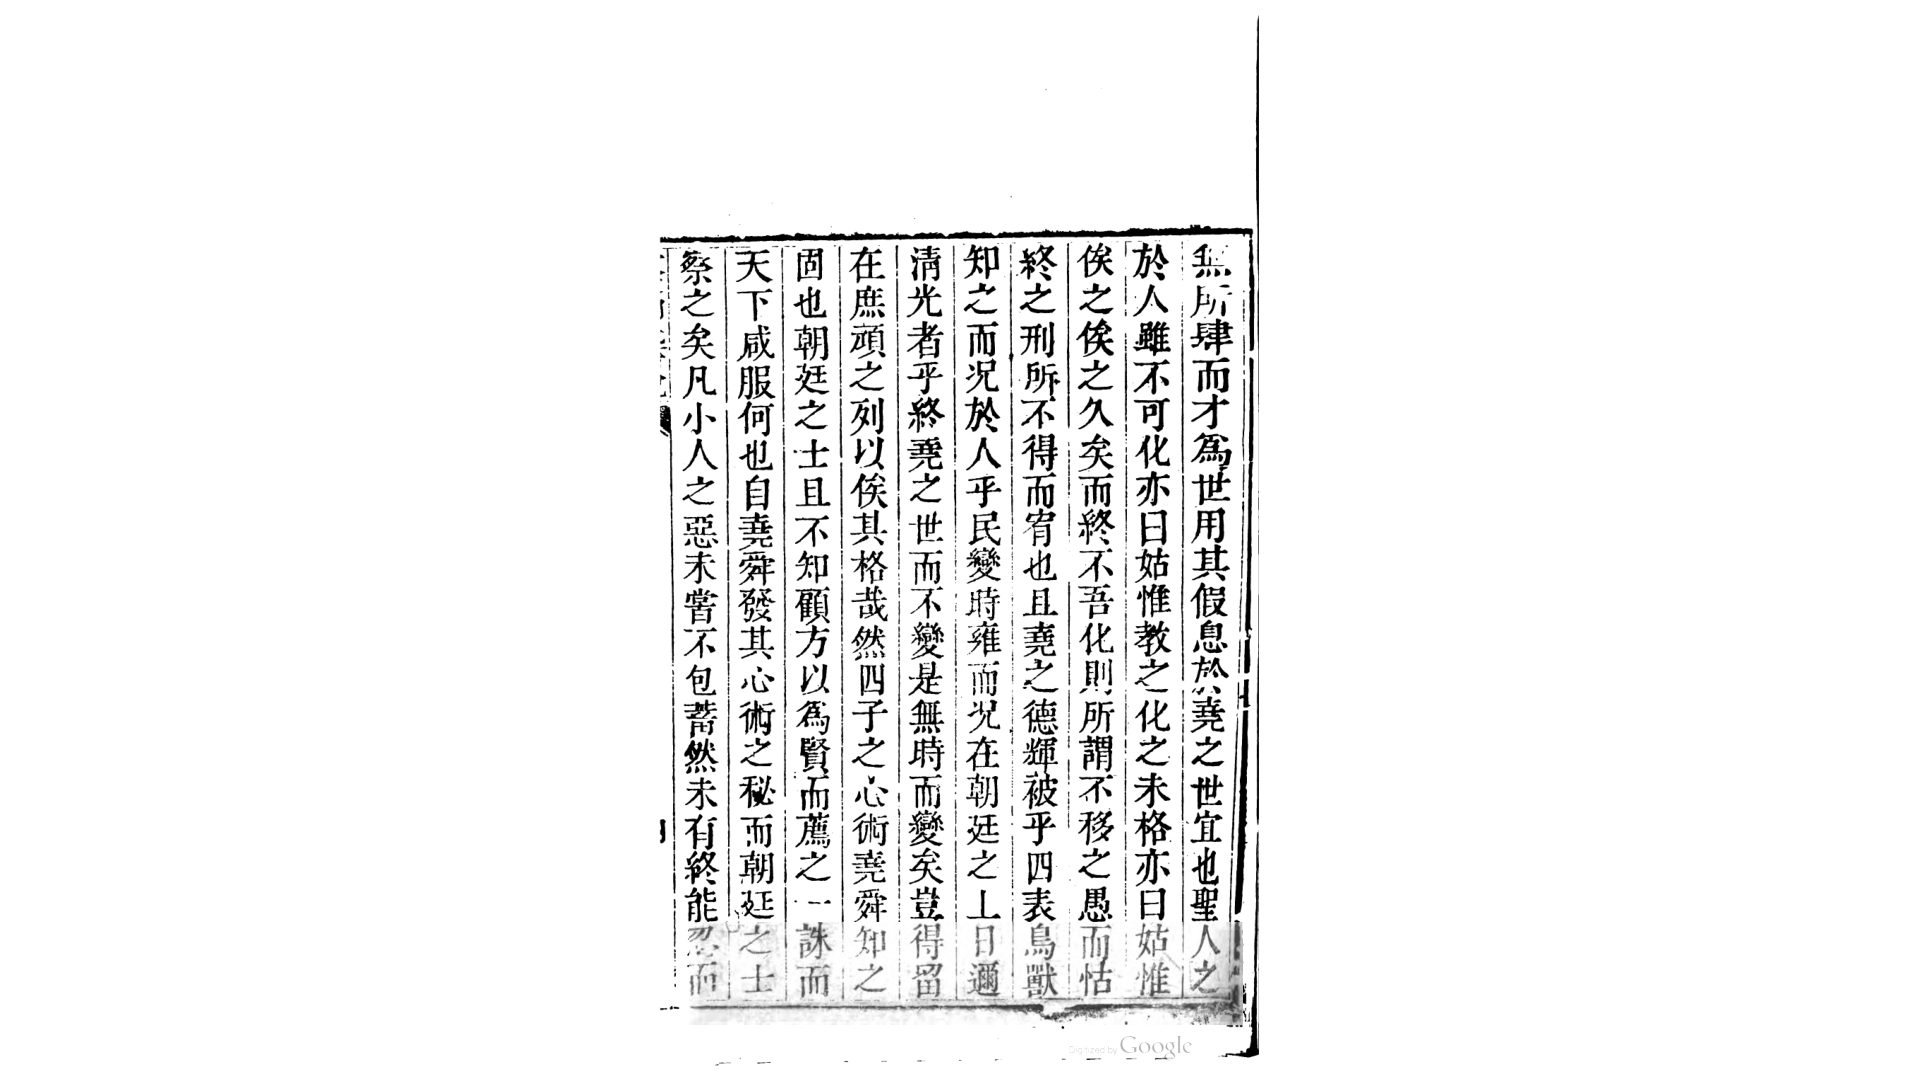 無所肆而才爲世用其假息於堯之世宜也聖人之
於人雖不可化亦曰姑惟教之化之未格亦曰姑惟
俟之俟之久矣而終不吾化則所謂不移之愚而怙
終之刑所不得而宥也且堯之德輝被乎四表鳥獸
知之而况於人乎民變時雍而况在朝廷之上日邇
清光者乎終堯之世而不變是無時而變矣豈得留
在庶頑之列以俟其格哉然四子之心術堯舜知之
固也朝廷之士且不知顧方以爲賢而薦之一誅而
天下咸服何也自堯舜發其心術之秘而朝廷之士
察之矣凡小人之惡未嘗不包蓄然未有終能忍而
Digitized by Google